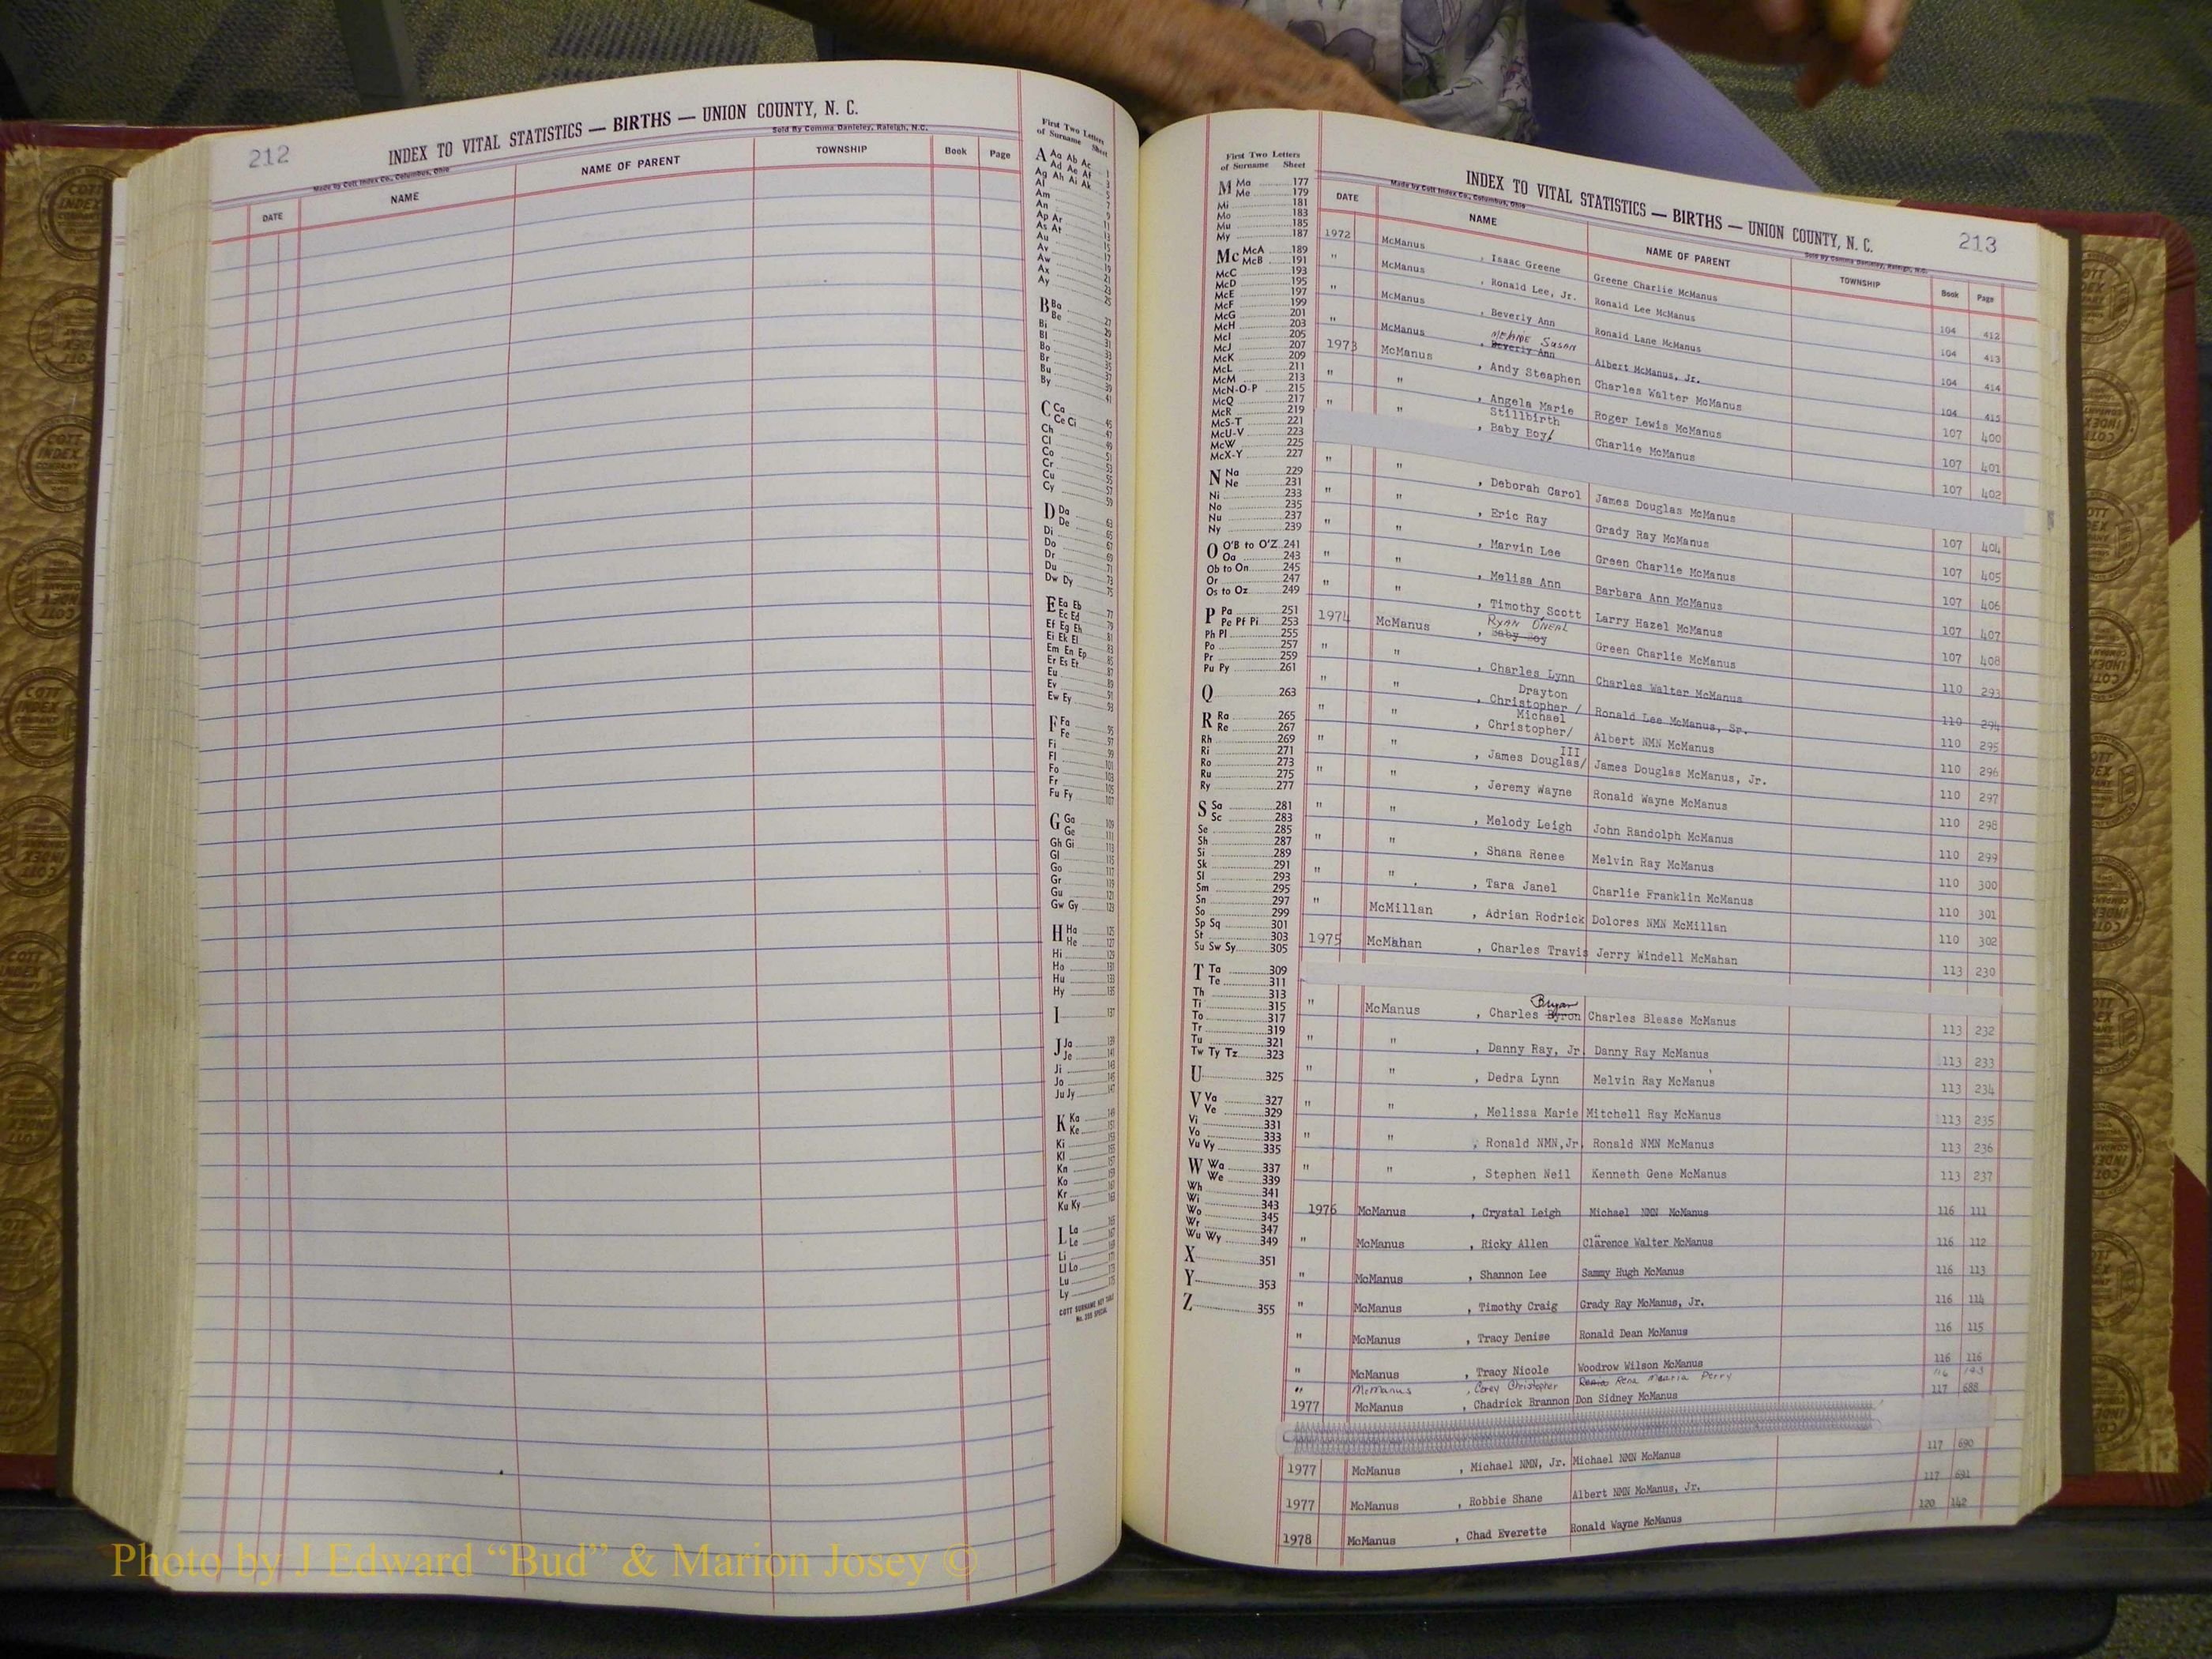 212
INDEX TO VITAL STATISTICS — BIRTHS — UNION COUNTY, N. C.
Made by Cott Index Co., Columbus, Ohio
Sold By Comma Danieley, Raleigh, N.C.
DATE NAME NAME OF PARENT TOWNSHIP Book Page
First Two Letters
of Surname Sheet
A Aa Ab Ac 1
Ad Ae Af 3
Ag Ah Ai Ak 5
Al 7
Am 9
An 11
Ap Ar 13
As At 15
Au 17
Av 19
Aw 21
Ax 23
Ay 25
B Ba 27
Be 29
Bi 31
Bl 33
Bo 35
Br 37
Bu 39
By 41
C Ca 45
Ce Ci 47
Ch 49
Cl 51
Co 53
Cr 55
Cu 57
Cy 59
D Da 63
De 65
Di 67
Do 69
Dr 71
Du 73
Dw Dy 75
E Ea Eb 77
Ec Ed 79
Ef Eg Eh 81
Ei Ek El 83
Em En Ep 85
Er Es Et 87
Eu 89
Ev 91
Ew Ey 93
F Fa 95
Fe 97
Fi 99
Fl 101
Fo 103
Fr 105
Fu Fy 107
G Ga 109
Ge 111
Gh Gi 113
Gl 115
Go 117
Gr 119
Gu 121
Gw Gy 123
H Ha 125
He 127
Hi 129
Ho 131
Hu 133
Hy 135
I 137
J Ja 139
Je 141
Ji 143
Jo 145
Ju Jy 147
K Ka 149
Ke 151
Ki 153
Kl 155
Kn 157
Ko 159
Kr 161
Ku Ky 163
L La 165
Le 167
Li 169
Ll Lo 171
Lu 173
Ly 175
COTT SURNAME KEY TABLE
No. 350 SPECIAL
First Two Letters
of Surname Sheet
M Ma 177
Me 179
Mi 181
Mo 183
Mu 185
My 187
Mc McA 189
McB 191
McC 193
McD 195
McE 197
McF 199
McG 201
McH 203
McI 205
McJ 207
McK 209
McL 211
McM 213
McN-O-P 215
McQ 217
McR 219
McS-T 221
McU-V 223
McW 225
McX-Y 227
N Na 229
Ne 231
Ni 233
No 235
Nu 237
Ny 239
O O'B to O'Z 241
Oa 243
Ob to On 245
Or 247
Os to Oz 249
P Pa 251
Pe Pf Pi 253
Ph Pl 255
Po 257
Pr 259
Pu Py 261
Q 263
R Ra 265
Re 267
Rh 269
Ri 271
Ro 273
Ru 275
Ry 277
S Sa 281
Sc 283
Se 285
Sh 287
Si 289
Sk 291
Sl 293
Sm 295
Sn 297
So 299
Sp Sq 301
St 303
Su Sw Sy 305
T Ta 309
Te 311
Th 313
Ti 315
To 317
Tr 319
Tu 321
Tw Ty Tz 323
U 325
V Va 327
Ve 329
Vi 331
Vo 333
Vu Vy 335
W Wa 337
We 339
Wh 341
Wi 343
Wo 345
Wr 347
Wu Wy 349
X 351
Y 353
Z 355
213
INDEX TO VITAL STATISTICS — BIRTHS — UNION COUNTY, N. C.
Made by Cott Index Co., Columbus, Ohio
Sold By Comma Danieley, Raleigh, N.C.
DATE NAME NAME OF PARENT TOWNSHIP Book Page
1972 McManus , Isaac Greene Greene Charlie McManus 104 412
" McManus , Ronald Lee, Jr. Ronald Lee McManus 104 413
" McManus , Beverly Ann Ronald Lane McManus 104 414
Melanie Susan
" McManus , Beverly Ann Albert McManus, Jr. 104 415
1973 McManus , Andy Steaphen Charles Walter McManus 107 400
" " , Angela Marie Roger Lewis McManus 107 401
Stillbirth
" " , Baby Boy/ Charlie McManus 107 402
" " , Deborah Carol James Douglas McManus 107 404
" " , Eric Ray Grady Ray McManus 107 405
" " , Marvin Lee Green Charlie McManus 107 406
" " , Melisa Ann Barbara Ann McManus 107 407
" " , Timothy Scott Larry Hazel McManus 107 408
RYAN ONEAL
1974 McManus , Baby Boy Green Charlie McManus 110 293
" " , Charles Lynn Charles Walter McManus 110 294
Drayton
" " , Christopher / Ronald Lee McManus, Sr. 110 295
Michael
" " , Christopher/ Albert NMN McManus 110 296
III
" " , James Douglas/ James Douglas McManus, Jr. 110 297
" " , Jeremy Wayne Ronald Wayne McManus 110 298
" " , Melody Leigh John Randolph McManus 110 299
" " , Shana Renee Melvin Ray McManus 110 300
" " , Tara Janel Charlie Franklin McManus 110 301
" McMillan , Adrian Rodrick Dolores NMN McMillan 110 302
1975 McMahan , Charles Travis Jerry Windell McMahan 113 230
Bryan
" McManus , Charles Byron Charles Blease McManus 113 232
" " , Danny Ray, Jr. Danny Ray McManus 113 233
" " , Dedra Lynn Melvin Ray McManus 113 234
" " , Melissa Marie Mitchell Ray McManus 113 235
" " , Ronald NMN,Jr. Ronald NMN McManus 113 236
" " , Stephen Neil Kenneth Gene McManus 113 237
1976 McManus , Crystal Leigh Michael NMN McManus 116 111
" McManus , Ricky Allen Clarence Walter McManus 116 112
" McManus , Shannon Lee Sammy Hugh McManus 116 113
" McManus , Timothy Craig Grady Ray McManus, Jr. 116 114
" McManus , Tracy Denise Ronald Dean McManus 116 115
" McManus , Tracy Nicole Woodrow Wilson McManus 116 116
" McManus , Corey Christopher Rena Maaria Perry 116 193
1977 McManus , Chadrick Brannon Don Sidney McManus 117 688
1977 McManus , Michael NMN, Jr. Michael NMN McManus 117 690
1977 McManus , Robbie Shane Albert NMN McManus, Jr. 117 691
1978 McManus , Chad Everette Ronald Wayne McManus 120 142
Photo by J Edward “Bud” & Marion Josey ©